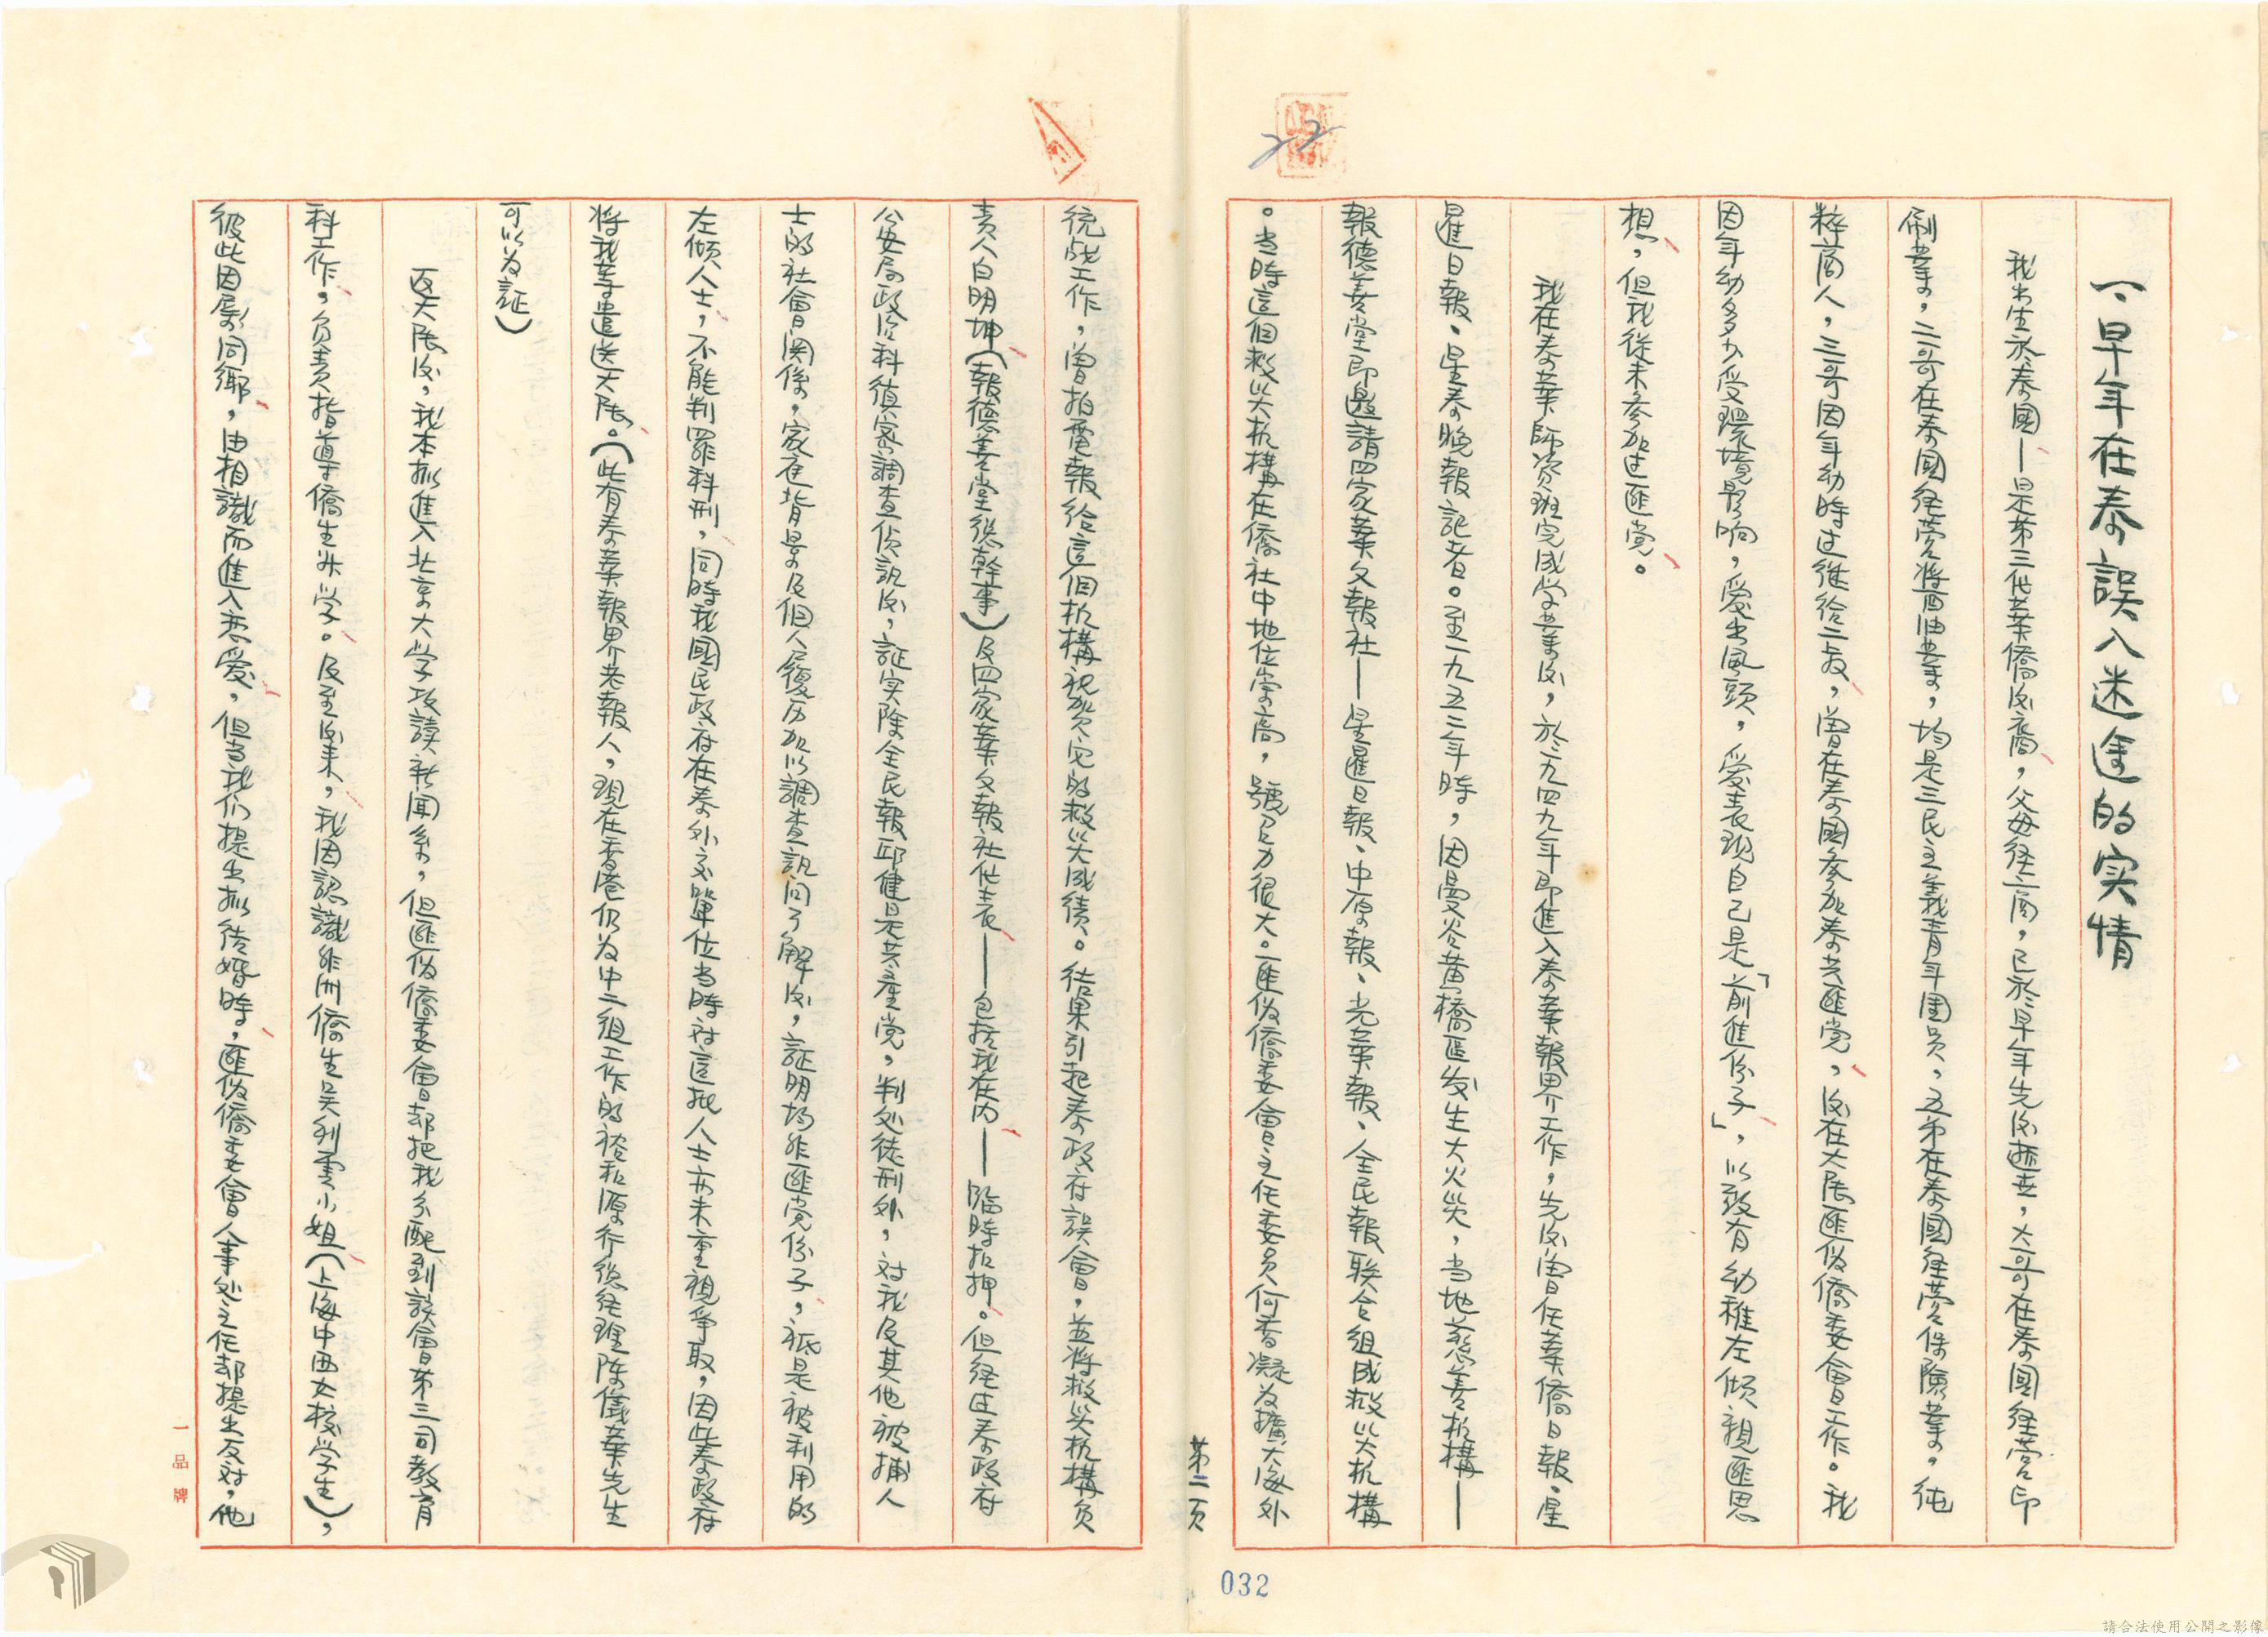 一、早年在泰誤入迷途的实情
我出生於泰國——是第三代華僑後裔，父母経商，已於早年先後逝世，大哥在泰國経营印
刷業，二哥在泰國経营醬油業，均是三民主義青年團员，五弟在泰國経营保險業。純
粹商人，三哥因年幼時过継给二叔，曾在泰國参加泰共匪党，後在大陸匪伪僑委會工作。我
因年幼多少受環境影响，爱出風頭，爱表現自己是「前進份子」，以致有幼稚左傾親匪思
想，但我從未参加过匪党。
我在泰華師资班完成学業後，於一九四九年即進入泰華報界工作，先後曾任華僑日報、星
暹日報、星泰晚報記者。至一九五二年時，因曼谷黄橋區发生大火災，当地慈善机構——
報德善堂即邀請四家華文報社——星暹日報、中原報、光華報、全民報联合組成救災机構
。当時這個救災机構在僑社中地位崇高，號召力很大。匪伪僑委會主任委員何香凝为擴大海外
第二页
統战工作，曾拍電報给這個机構祝贺它的救災成绩。结果引起泰政府誤會，並将救災机構负
责人白明坤（報德善堂總幹事）及四家華文報社代表——包括我在内——臨時扣押。但経过泰政府
公安局政治科縝密調查偵訊後，証实除全民報邱健是共產党，判処徒刑外，对我及其他被捕人
士的社會関係，家庭背景及個人履历加以調查訊问了解後，証明均非匪党份子，祇是被利用的
左傾人士，不能判罪科刑，同時我國民政府在泰外交單位当時对這批人士亦未重視争取，因此泰政府
将我等遣送大陸。（此有泰華報界老報人，現在香港仍为中二組工作的
可以为証）
返大陸後，我本拟進入北京大学攻讀新闻系，但匪伪僑委會却把我分配到該會第三司教育
科工作，负责指導僑生升学。及至後来，我因認識非洲僑生吴利雲小姐（上海中西女校学生），
彼此因属同鄉，由相識而進入恋爱，但当我们提出拟结婚時，匪伪僑委會人事処主任却提出反对，他
一品牌
032
22
請合法使用公開之影像